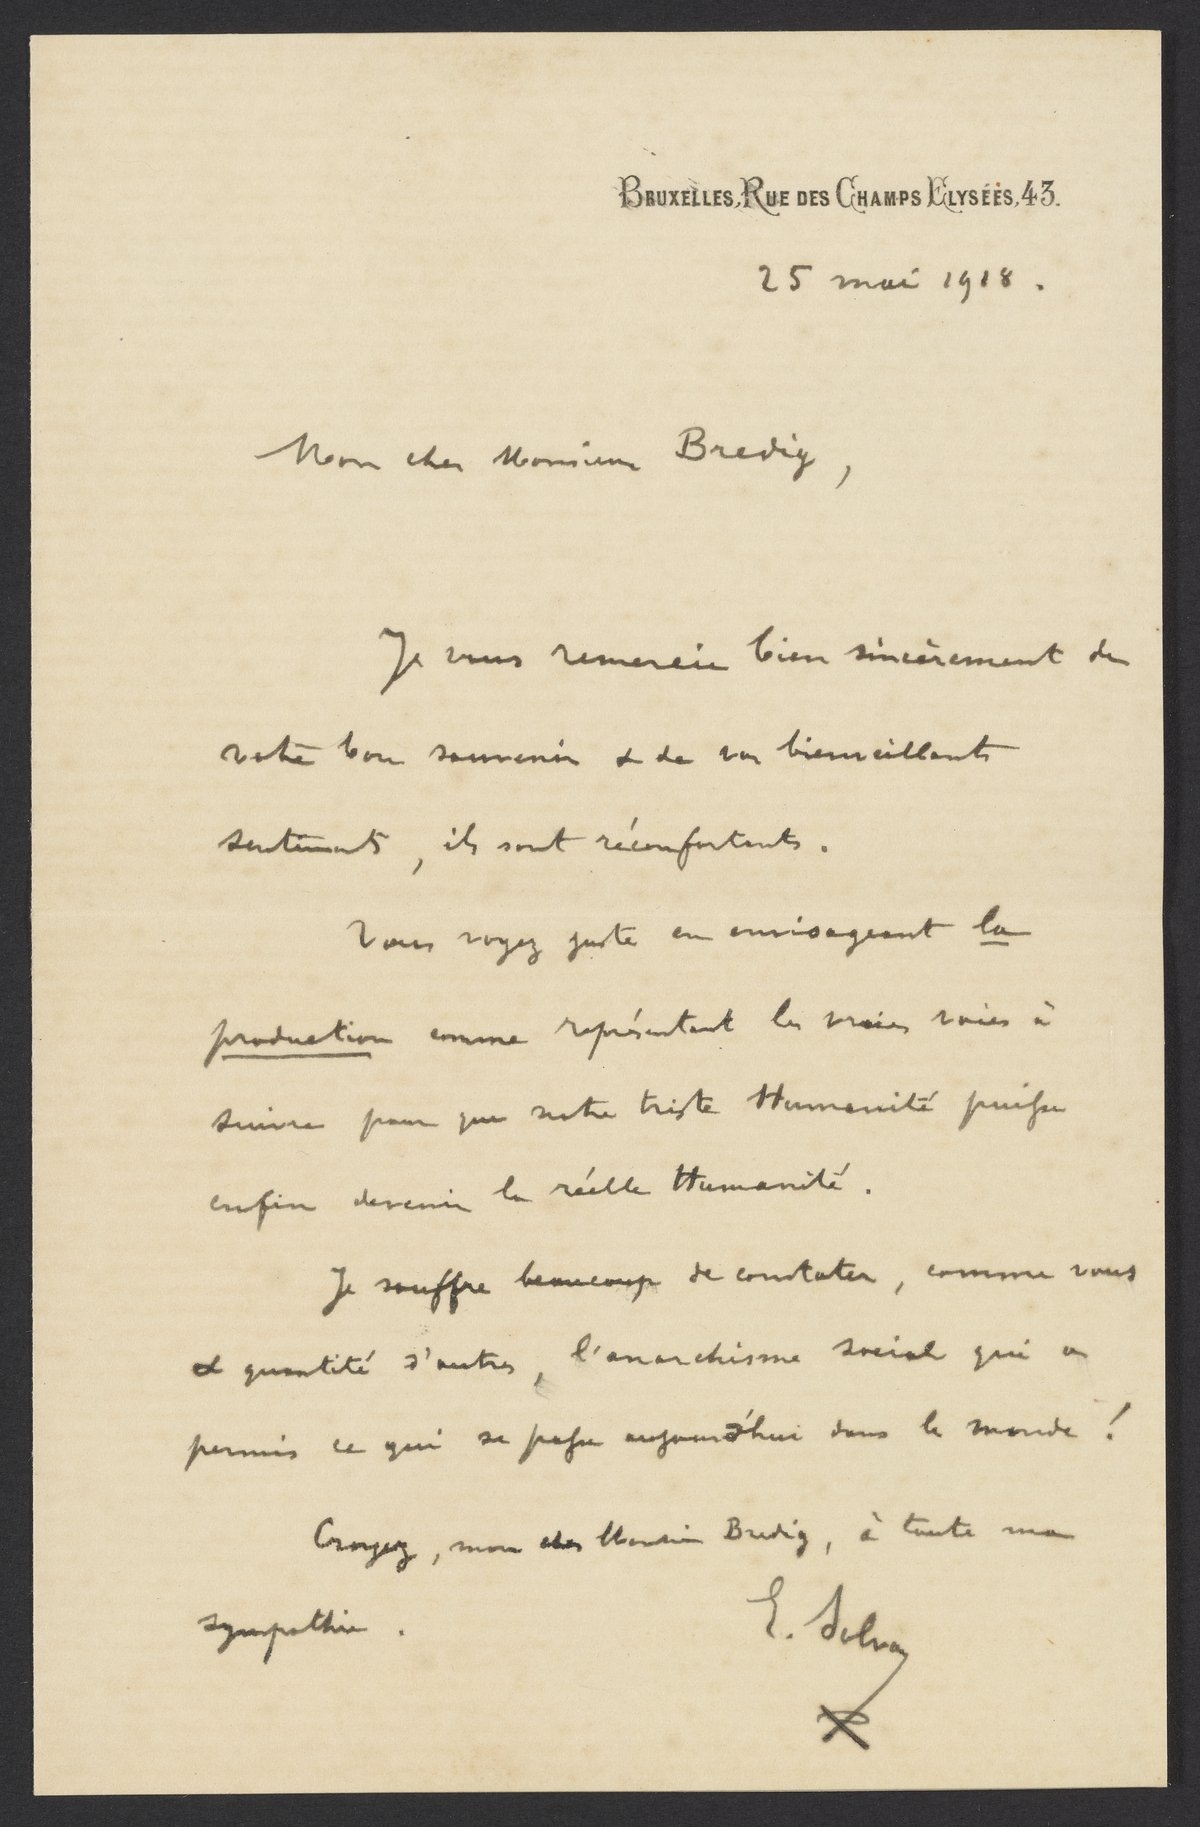 BRUXELLES, RUE DES CHAMPS ELYSÉES, 43.
25 mai 1918.
Mon cher Monsieur Bredig,
Je vous remercie bien sincèrement de
votre bon souvenir & de vos bienveillants
sentiments, ils sont réconfortants.
Vous voyez juste en envisageant la
production comme représentant les vraies voies à
suivre pour que notre triste Humanité puisse
enfin devenir la réelle Humanité.
Je souffre beaucoup de constater, comme vous
& quantité d'autres, l'anarchisme social qui a
permis ce qui se passe aujourd'hui dans le monde!
Croyez, mon cher Monsieur Bredig, à toute ma
sympathie.
E. Solvay